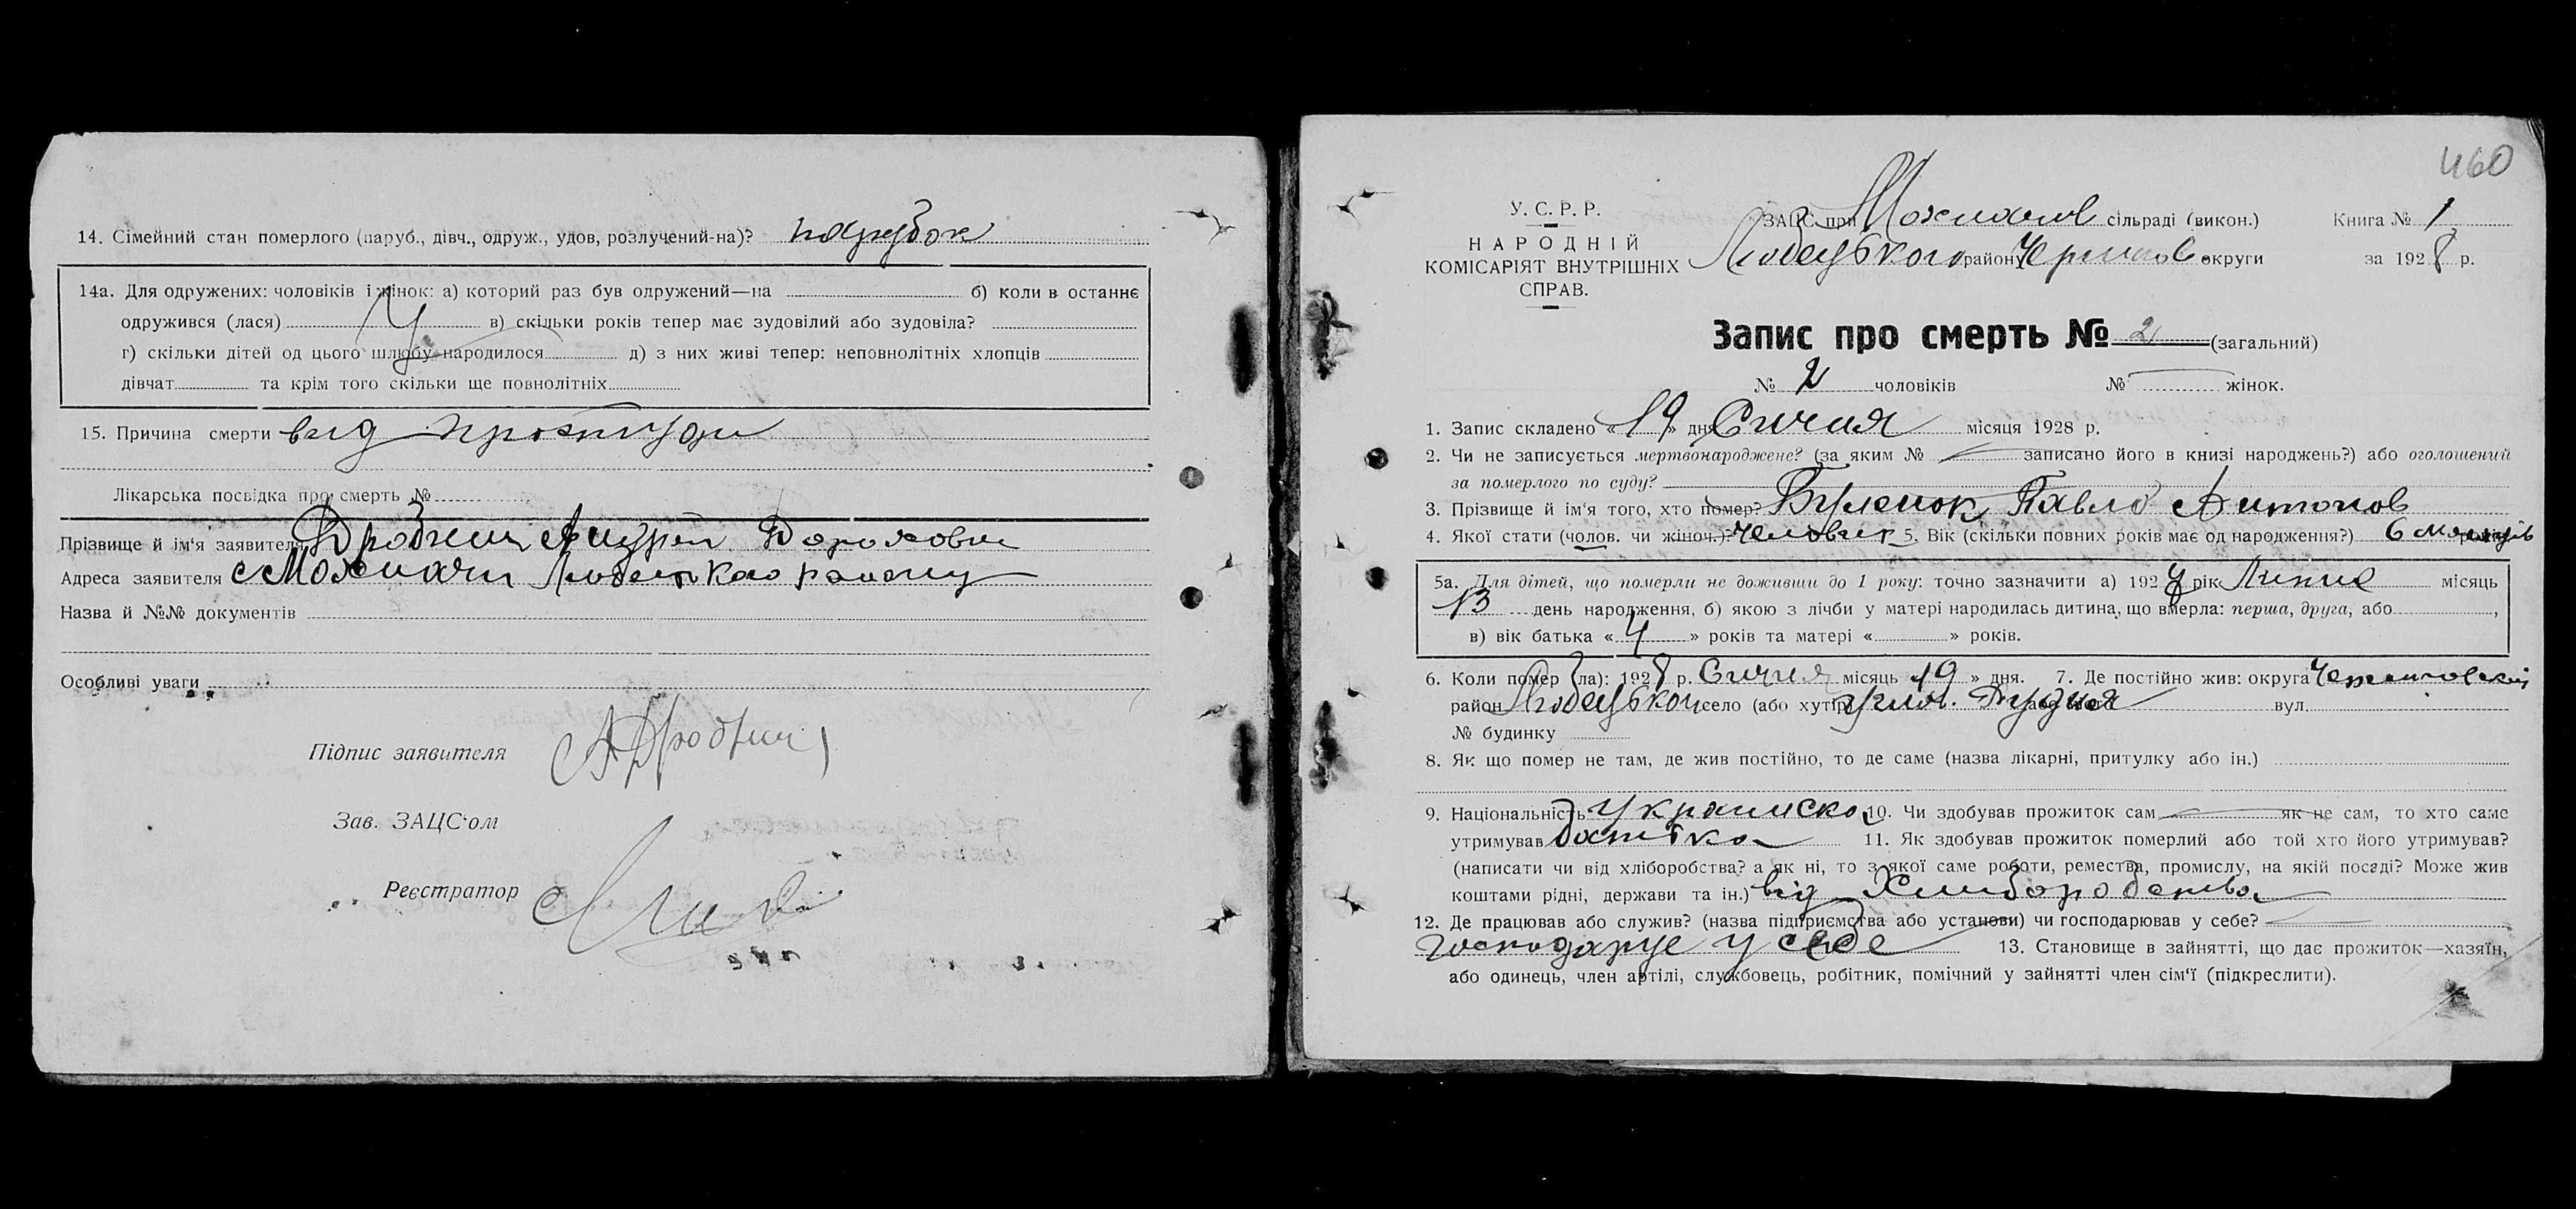 14. Сімейний стан померлого (паруб., дівч., одруж., удов, розлучений-на)? парубок
14а. Для одружених: чоловіків і жінок: а) который раз був одружений—на б) коли в останнє
одружився (лася) в) скільки років тепер має зудовілий або зудовіла?
г) скільки дітей од цього шлюбу народилося д) з них живі тепер: неповнолітніх хлопців
дівчат та крім того скільки ще повнолітніх
15. Причина смерти від простуди
Лікарська посвідка про смерть №
Прізвище й ім'я заявителя Андрей
Адреса заявителя с Мохначи Любецкаго району
Назва й №№ документів
Особливі уваги
Підпис заявителя
Зав. ЗАЦС'ом
Реєстратор
460
У. С. Р. Р.
НАРОДНІЙ
КОМІСАРІЯТ ВНУТРІШНІХ
СПРАВ.
ЗАЦС при Мохначов сільраді (викон.)
Любецького району Чернигов. округи
Книга № 1
за 1928 р.
Запис про смерть № 2 (загальний)
№ 2 чоловіків № жінок.
1. Запис складено «19» дня Сичня місяця 1928 р.
2. Чи не записується мертвонароджене? (за яким № записано його в книзі народжень?) або оголошений
за померлого по суду?
3. Прізвище й ім'я того, хто помер? Буленок Павло Антонов
4. Якої стати (чолов. чи жіноч.)? Человик 5. Вік (скільки повних років має од народження?) 6 мясяців
5а. Для дітей, що померли не доживши до 1 року: точно зазначити а) 1927 рік Липня місяць
13 день народження, б) якою з лічби у матері народилась дитина, що вмерла: перша, друга, або ,
в) вік батька « » років та матері « » років.
6. Коли помер (ла): 1928 р. Сичня місяць 19 » дня. 7. Де постійно жив: округа Черниговский
район Любецький село (або хутір) Рудня вул.
№ будинку
8. Як що помер не там, де жив постійно, то де саме (назва лікарні, притулку або ін.)
9. Національність Украинска 10. Чи здобував прожиток сам як не сам, то хто саме
утримував батько 11. Як здобував прожиток померлий або той хто його утримував?
(написати чи від хліборобства? а як ні, то з якої саме роботи, ремества, промислу, на якій посаді? Може жив
коштами рідні, держави та ін.) від Хлиборобства
12. Де працював або служив? (назва підприємства або установи) чи господарював у себе?
господарує у себе 13. Становище в зайнятті, що дає прожиток—хазяїн,
або одинець, член артілі, службовець, робітник, помічний у зайнятті член сім'ї (підкреслити).